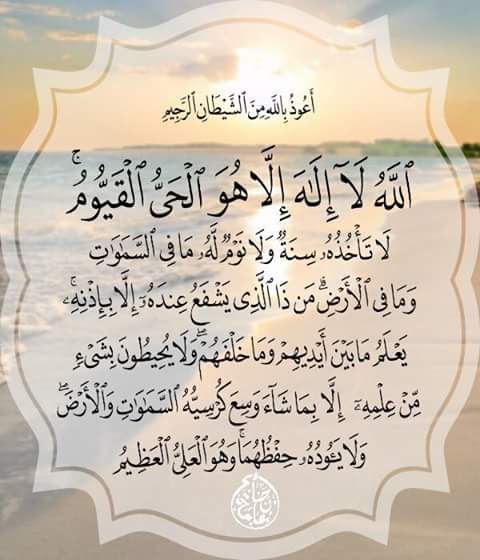 أَعُوذُ بِٱللَّهِ مِنَ ٱلشَّيْطَانِ ٱلرَّجِيمِ
ٱللَّهُ لَآ إِلَٰهَ إِلَّا هُوَ ٱلْحَىُّ ٱلْقَيُّومُ ۚ
لَا تَأْخُذُهُۥ سِنَةٌ وَلَا نَوْمٌ لَّهُۥ مَا فِى ٱلسَّمَٰوَٰتِ
وَمَا فِى ٱلْأَرْضِ ۗ مَن ذَا ٱلَّذِى يَشْفَعُ عِندَهُۥٓ إِلَّا بِإِذْنِهِۦ ۚ
يَعْلَمُ مَا بَيْنَ أَيْدِيهِمْ وَمَا خَلْفَهُمْ ۖ وَلَا يُحِيطُونَ بِشَىْءٍ
مِّنْ عِلْمِهِۦٓ إِلَّا بِمَا شَآءَ وَسِعَ كُرْسِيُّهُ ٱلسَّمَٰوَٰتِ وَٱلْأَرْضَ ۖ
وَلَا يَـُٔودُهُۥ حِفْظُهُمَا ۚ وَهُوَ ٱلْعَلِىُّ ٱلْعَظِيمُ